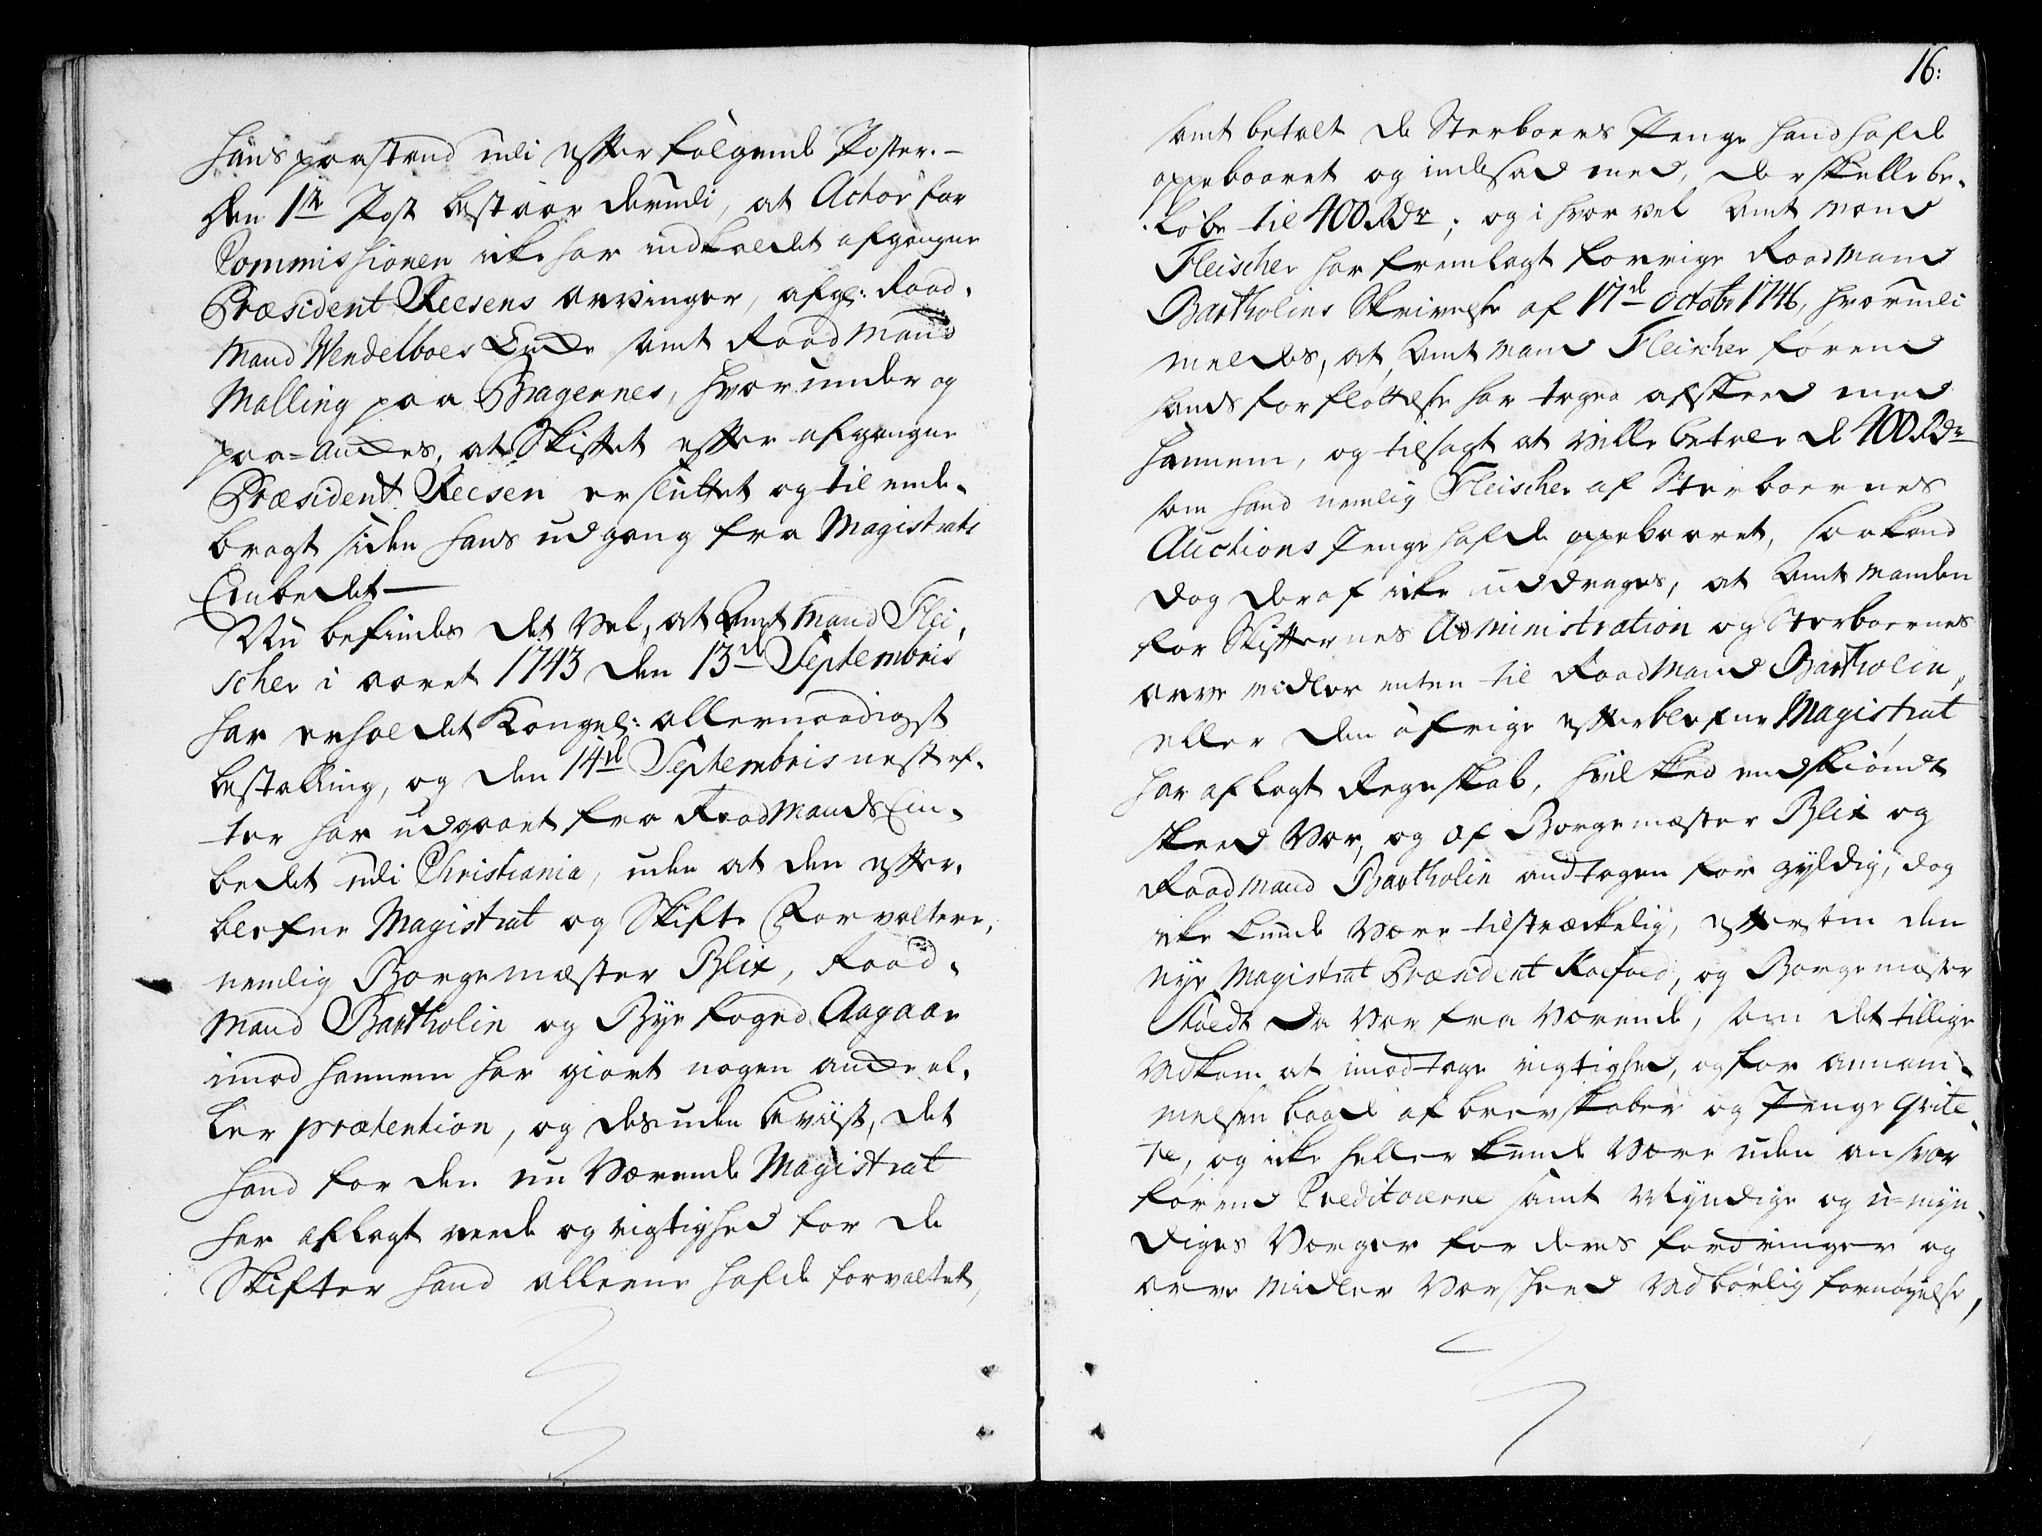 hans paastand udi efterfølgende Poster. –
Den 1te Post bestaar derudi, at Actor for
Commissionen icke har indkaldet afgangne
Præsident Reesens arvinger, afg: Raad-
mand Wendelboes Encke samt Raadmand
Malling paa Bragernes, hvorunder og
paa-anckes, at Skiftet efter afgangne
Præsident Reesen er sluttet og til ende-
bragt siden hans udgang fra Magistrats
Embedet —
Nu befindes det vel, at Amtmand Flei-
scher i aaret 1743 den 13de Septembris
har erholdet Kongel: allernaadigst
bestalling, og den 14de Septembris nest ef-
ter har udgaaet fra Raadmands Em-
bedet udi Christiania, uden at den efter-
blefne Magistrat og Skifte Forvaltere,
nemlig Borgemæster Blix, Raad-
mand Bartholin og Bye foged Aagaar
imod hannem har giort nogen ancke el-
ler prætention, og desuden beviist, det
hand for den nu værende Magistrat
har aflagt reede og rigtighed for de
Skifter hand alleene hafde forvaltet,
16:
samt betalt de Sterboers Penge hand hafde
oppebaaret og indesad med, der skulle be-
løbe til 400 Rdr; og i hvor vel Amtmand
Fleischer har fremlagt forrige Raadmand
Bartholins Skrivelse af 17de Octobr 1746, hvorudi
meldes, at Amtmand Fleischer førend
hands forfløttelse har tagen afskeed med
hannem, og tilsagt at ville betale de 400 Rdr
som hand nemlig Fleischer af Sterboernes
Auctions Penge hafde oppebaaret, saa kand
dog deraf icke uddrages, at Amtmanden
for Skifternes Administration og Sterboernes
arve midler enten til Raadmand Bartholin,
eller den øfrige efterblefne Magistrat
har aflagt Regnskab, hvilcked endskiøndt
skeed var, og af Borgemæster Blix og
Raadmand Bartholin andtagen for gyldig, dog
icke kunde være tilstræckelig, eftersom den
nye Magistrat Præsident Koefoed, og Borgemæster
Stoedt da var fra værende, som det tillige
vedkom at imodtage rigtighed, og for annam-
melsen baade af brevskaber og Penge qvite-
re, og icke heller kunde være uden ansvar
førend Creditorerne samt Myndige og u-myn-
diges Værger for deres fordringer og
arve Midler var skeed vedbørlig fornøyelse,